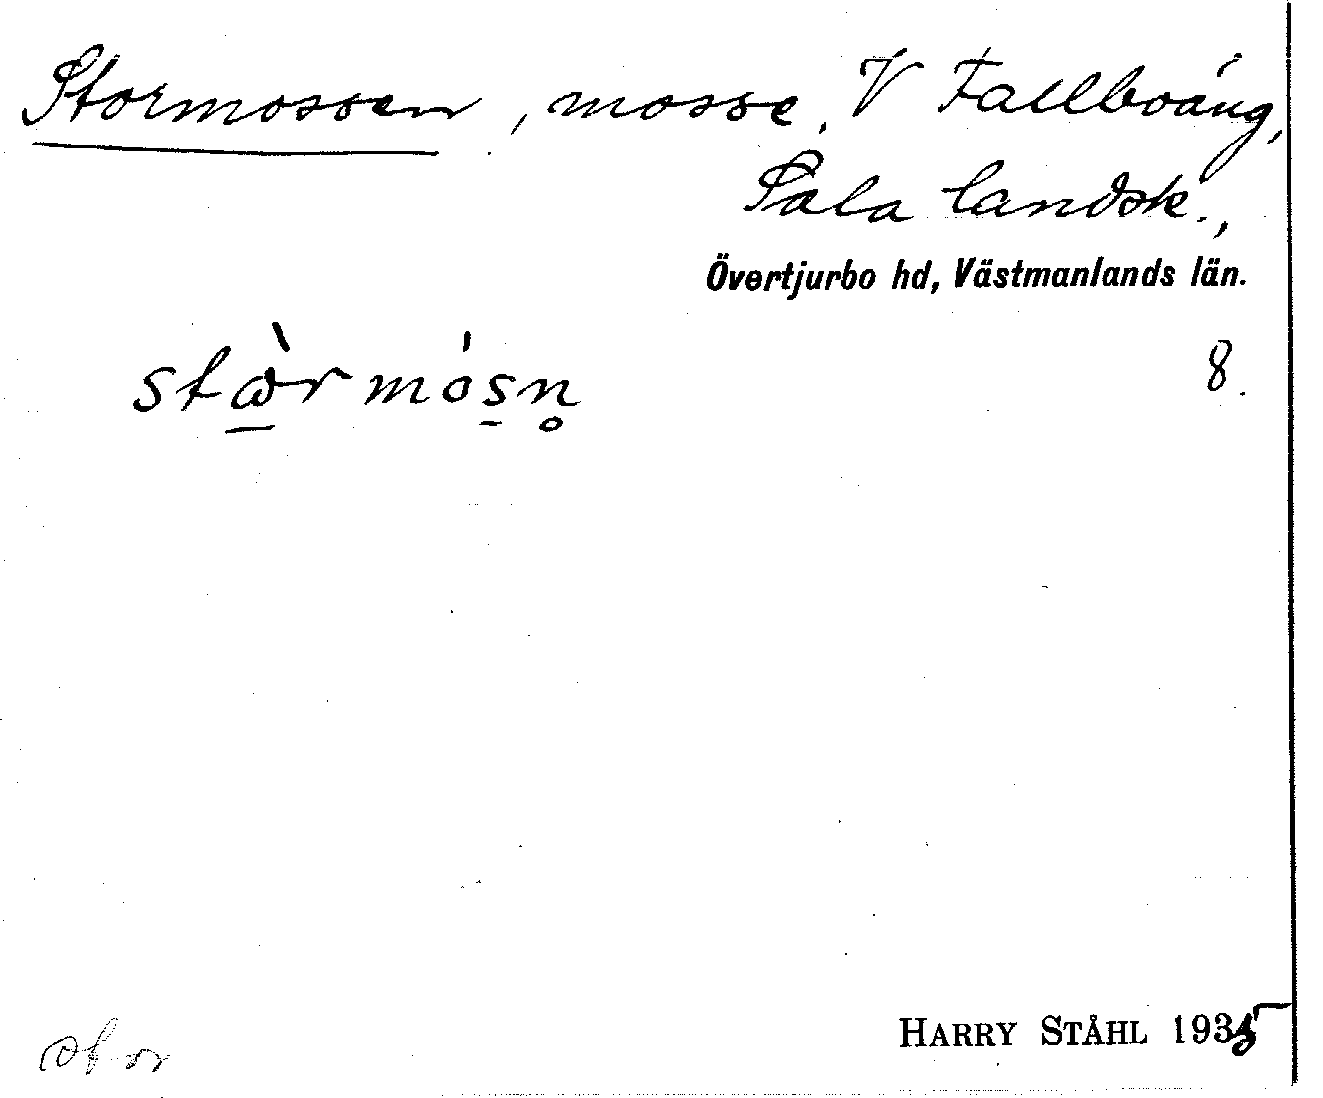 Stormossen, mosse, V Fallboäng,
Sala landsk.,
Övertjurbo hd, Västmanlands län.
8.
HARRY STÅHL 1935